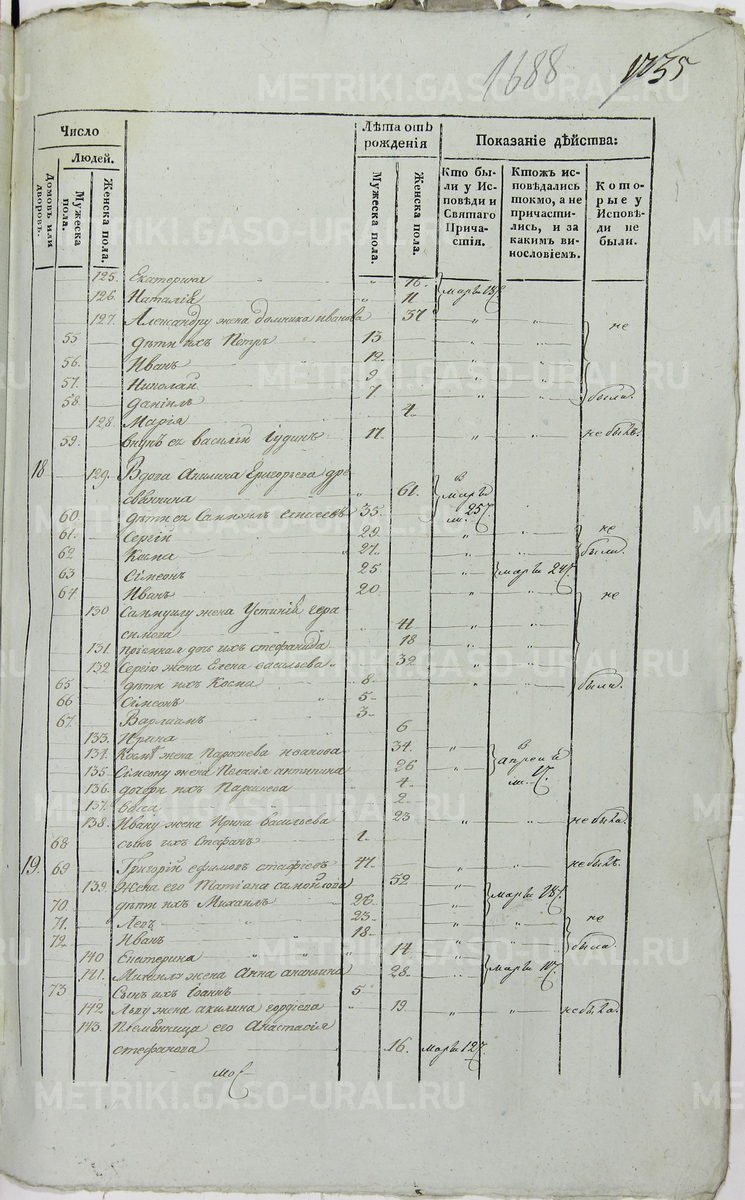 1688 1735
Число
Людей.
Домовъ или дворовъ.
Мужеска пола.
Женска пола.
Лѣта отъ рожденія
Мужеска пола.
Женска пола.
Показаніе дѣйства:
Кто были у Исповѣди и Святаго Причастія.
Ктожъ исповѣдались токмо, а не причастились, и за какимъ винословіемъ.
Которые у Исповѣди не были.
125. Екатерина 16.
126. Наталія 11 Марта
127. Александру жена Домника Иванова 37 не
55 дѣти ихъ Петръ 13
56. Иванъ 12.
57. Николай 9
58. Даніилъ 7 были.
128. Марія 4.
59. внукъ ея Василій Іудинъ 17. не былъ.
18 129. Вдова Акилина Григорьева
61. в Марта 25
60 дѣти ея Самуилъ 35.
61. Сергій 29. не
62 Косма 27. были.
63 Сімеонъ 25 Марта
64 Иванъ 20. не
130 Самуилу жена Устинія Гера
симова 41
131. пріемная дочь ихъ Стефанида 18
132 Сергію жена Елена Васильева 32
65 дѣти ихъ Косма 8 были.
66 Сімеонъ 5
67. Варлаамъ 3
133. Ирина 6
134. Космѣ жена Параскева Иванова 34. в
135 Сімеону жена Пелагія Антипина 26 Апреля
136. дочери ихъ Парасковья 4
137. 2
138. Ивану жена Ирина Васильева 23 не была.
68 сынъ ихъ Стефанъ 1.
19. 69 Григорій Ефимовъ 47. не былъ.
139. Жена его Татіана Самойлова 52
70. дѣти ихъ Михаилъ 26. Марта
71. Левъ 23 не
72. Иванъ 18
140 Екатерина 14 была.
141. Михаилу жена Анна Ананьина 28 Марта
73 Сынъ ихъ Іоаннъ 5
142 Льву жена Акилина Гордѣева 19. не была.
143. Племянница его Анастасія
Стефанова 16. Марта
METRIKI.GASO-URAL.RU